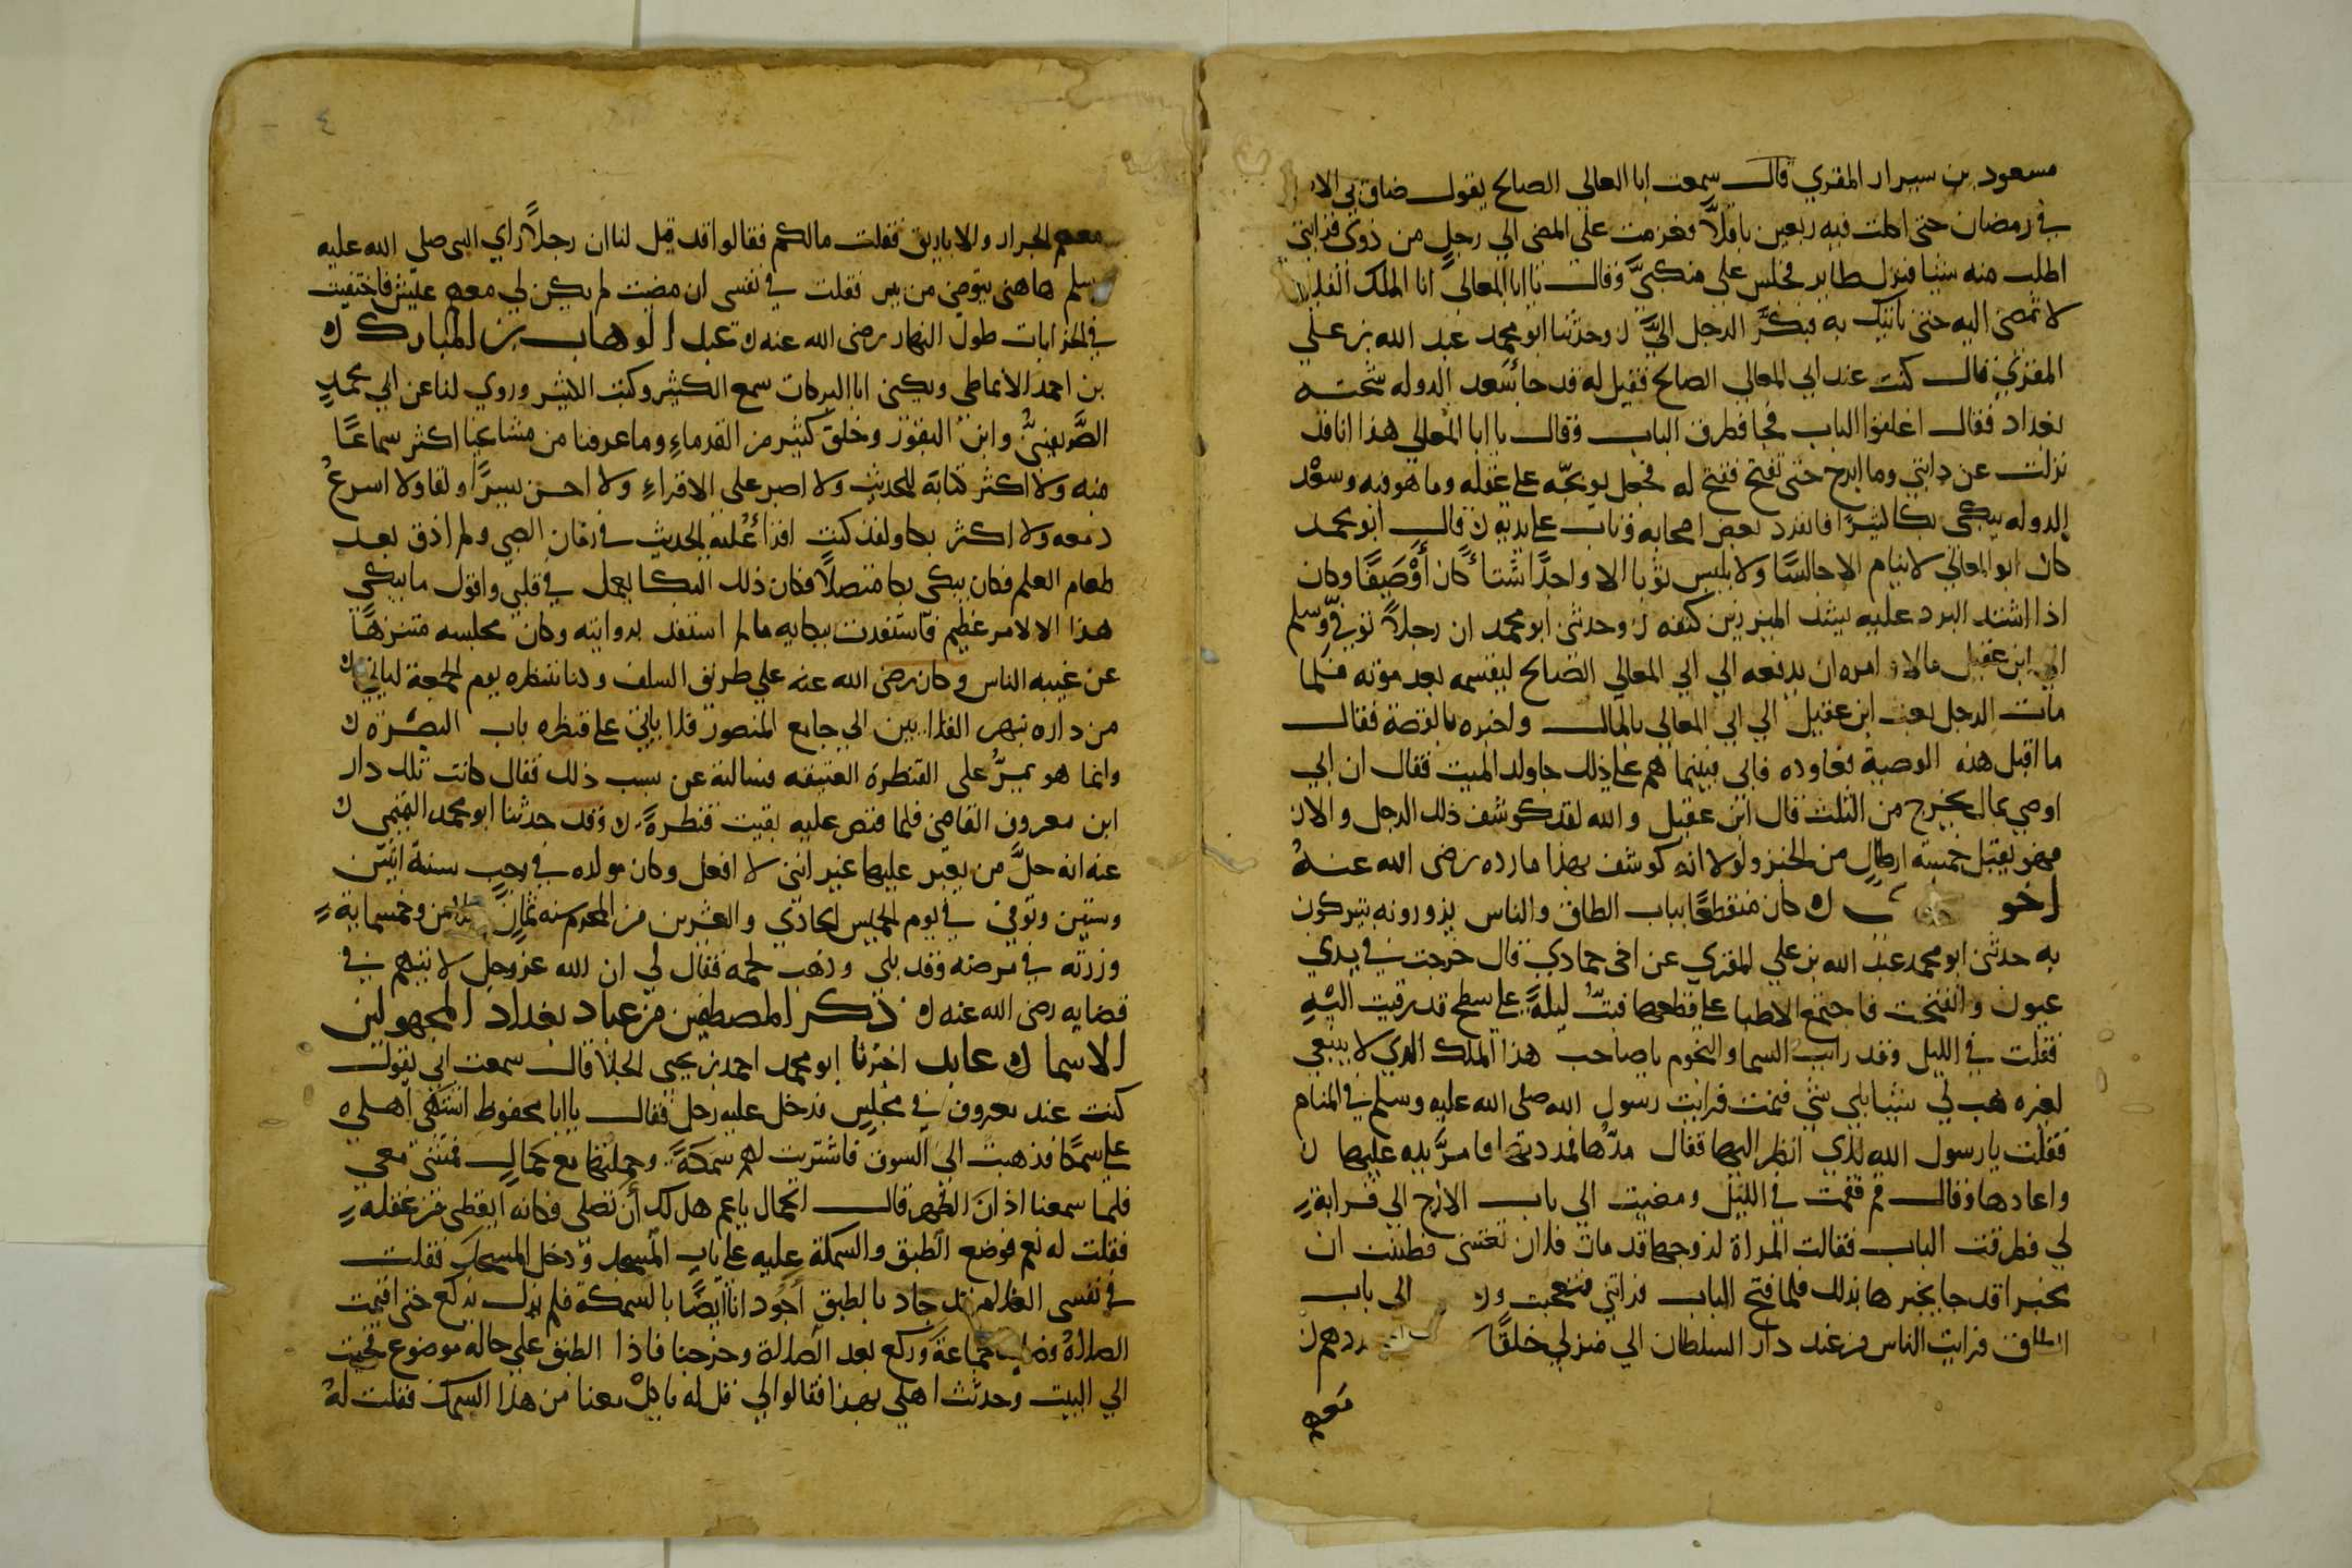 مسعود بن سيرار المقري قال سمعت ابا المعالي الصالح يقول ضاق بي الا
في رمضان حتى اكلت فيه ربعين باقلًا فعزمت علي المضي الي رجل من ذوي قرابتي
اطلب منه شيا فنزل طاير فجلس على منكبيَّ وقال يا ابا المعالي انا الملك الفلا
لا تمضي اليه حتى ناتيك به فبكَّر الرجل اليَّ ن وحدثنا ابو محمد عبد الله بن علي
المقري قال كنت عند ابي المعالي الصالح فقيل له قد جا سعد الدوله شحنه
بغداد فقال اغلقوا الباب فجا فطرق الباب وقال يا ابا المعالي هذا انا قد
نزلت عن دابتي وما ابرح حتى تفتح ففتح له فجعل يوبخه على عفله وما هو فيه وسعد
الدوله يبكي بكا كثيرًا فانفرد بعض اصحابه وتاب على يديه ن قال ابو محمد
كان ابو المعالي لا ينام الا جالسًا ولا يلبس ثوبا الا واحدًا شتاً كان أوْصَيفًا وكان
اذا اشتد البرد عليه يشد الميزر بين كتفه ن وحدثني ابو محمد ان رجلاً توفي وسلم
الي ابن عقيل مالا وامره ان يدفعه الي ابي المعالي الصالح ليقسمه بعد موته فلما
مات الرجل بعث ابن عقيل الي ابي المعالي بالمال واخبره بالقصة فقال
ما اقبل هذه الوصية فعاوده فابى فبينما هم على ذلك جا ولد الميت فقال ان ابي
اوصي بما لا يخرج من الثلث قال ابن عقيل والله لقد كوشف ذلك الرجل والا
فهو يقبل خمسة ارطالٍ من الخبز ولولا انه كوشف بهذا ما رده رضى الله عنه
اخو ن كان منقطعًا بباب الطاق والناس يزورونه يتبركون
به حدثني ابو محمد عبد الله بن علي المقري عن اخي حمادي قال خرجت في يدي
عيون وانتفخت فاجتمع الاطبا على قطعها فبتُّ ليلةً على سطح قد رقيت اليه
فقلت في الليل وقد رايت السما والنجوم يا صاحب هذا الملك الذي لا ينبغي
لغيره هب لي شيا بلي شي فنمت فرايت رسول الله صلى الله عليه وسلم في المنام
فقلت يا رسول الله يدي انظر اليها فقال مدَّها فمددتها فامرَّ يده عليها ن
واعادها وقال قم فقمت في الليل ومضيت الي باب الازج الي قرابة
لي فطرقت الباب فقالت المراة لزوجها قد مات فلان تعني فظننت ان
مخبرا قد جا يخبرها بذلك فلما فتح الباب فراتني فتعجبت الى باب
الطاق فرايت الناس من عند دار السلطان الي منزلي خلقًا
معهم
معهم الجرار والاباريق فقلت مالكم فقالوا قد قيل لنا ان رجلاً راي النبي صلى الله عليه
وسلم هاهنى يتوضى من بير فقلت في نفسى ان مضيت لم يكن لي معهم عليش فاختفيت
في الخرابات طول النهار رضى الله عنه ن عبد الوهاب بن المبارك ن
بن احمد الانماطي ويكنى ابا البركات سمع الكثير وكتب الكثير وروي لنا عن ابي محمد
الصَّريفيني وابن النقور وخلقٍ كثير من القدماء وما عرفنا من مشايخنا اكثر سماعًا
منه ولا اكثر كتابة للحديث ولا اصبر على الاقراء ولا احسن بشرًا ولقا ولا اسرع
دمعه ولا اكثر بكا ولقد كنت اقرا عليه الحديث في زمان الصبي ولم اذق بعد
طعام العلم فكان يبكى بكا متصلاً فكان ذلك البكا يعمل في قلبي واقول ما يبكي
هذا الا لامر عظيم فاستفدت ببكايه ما لم استفد بروايته وكان مجلسه متنزهًا
عن غيبة الناس وكان رضى الله عنه علي طريق السلف وكنا ننتظره يوم الجمعة لياتي
من داره نهر القلايين الي جامع المنصور فلا ياتي على قنطره باب البصره ن
وانما هو يمرُّ على القنطرة العتيقه فسالته عن سبب ذلك فقال كانت تلك دار
ابن معروف القاضي فلما قبض عليه بقيت قنطرةً ن وقد حدثنا ابو محمد التميمى ن
عنه انه حلَّ من يعبر عليها غير انني لا افعل وكان مولده في رجب سنة اثنين
وستين وتوفي في يوم الخميس الحادي والعشرين من المحرم سنه ثمان وثلاثين وخمسماية
وزرته في مرضه وقد بلي وذهب لحمه فقال لي ان الله عز وجل لا يتهم في
قضايه رضى الله عنه ن ذكر المصطفين من عباد بغداد المجهولين
الاسما ن عابد اخبرنا ابو محمد احمد بن يحيى الجلا قال سمعت ابي يقول
كنت عند معروف في مجلس فدخل عليه رجل فقال يا ابا محفوظ اشتهى اهلي
علي سمكًا فذهبت الى السوق فاشتريت لهم سمكةً وحملتها مع حمال فمشى معي
فلما سمعنا اذان الظهر قال الحمال يا عم هل لك أن تصلى فكانه ايقظني من غفلة
فقلت له نعم فوضع الطبق والسمكة عليه على باب المسجد ودخل المسجد فقلت
في نفسى الغلام قد جاد بالطبق أجود انا ايضًا بالسمكة فلم يزل يركع حتى اقيمت
الصلاة وصلى جماعة وركع بعد الصلاة وخرجنا فاذا الطبق علي حاله موضوع فجيت
الي البيت وحدثت اهلي بهذا فقالوا لي قل له ياكل معنا من هذا السمك فقلت له